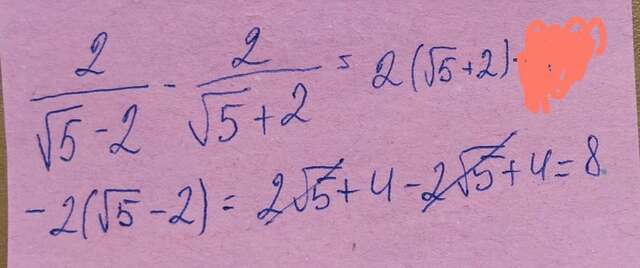 2/(√5-2) - 2/(√5+2) = 2(√5+2)-
-2(√5-2) = 2√5+4-2√5+4=8